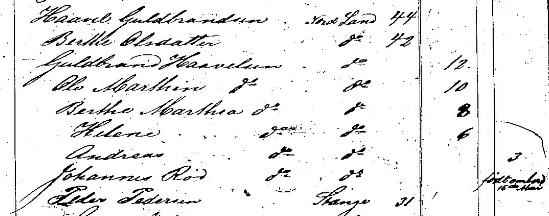 Haavel Guldbrandsen Nord Land 44
Berthe Olsdatter do 42
Guldbrand Haavelsen do 12
Ole Marthin do do 10
Berthe Marthea do do 8
Helene do do 6
Andreas do do 3
Johannes Rød do do født ombord
Peder Pedersen Stange 31